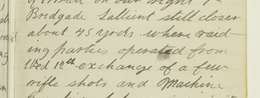 on our right
Bridgade Sallient still closer
about 45 yards where raid-
ing parties operated from
Wed 12th exchange of a few
rifle shots and Machine